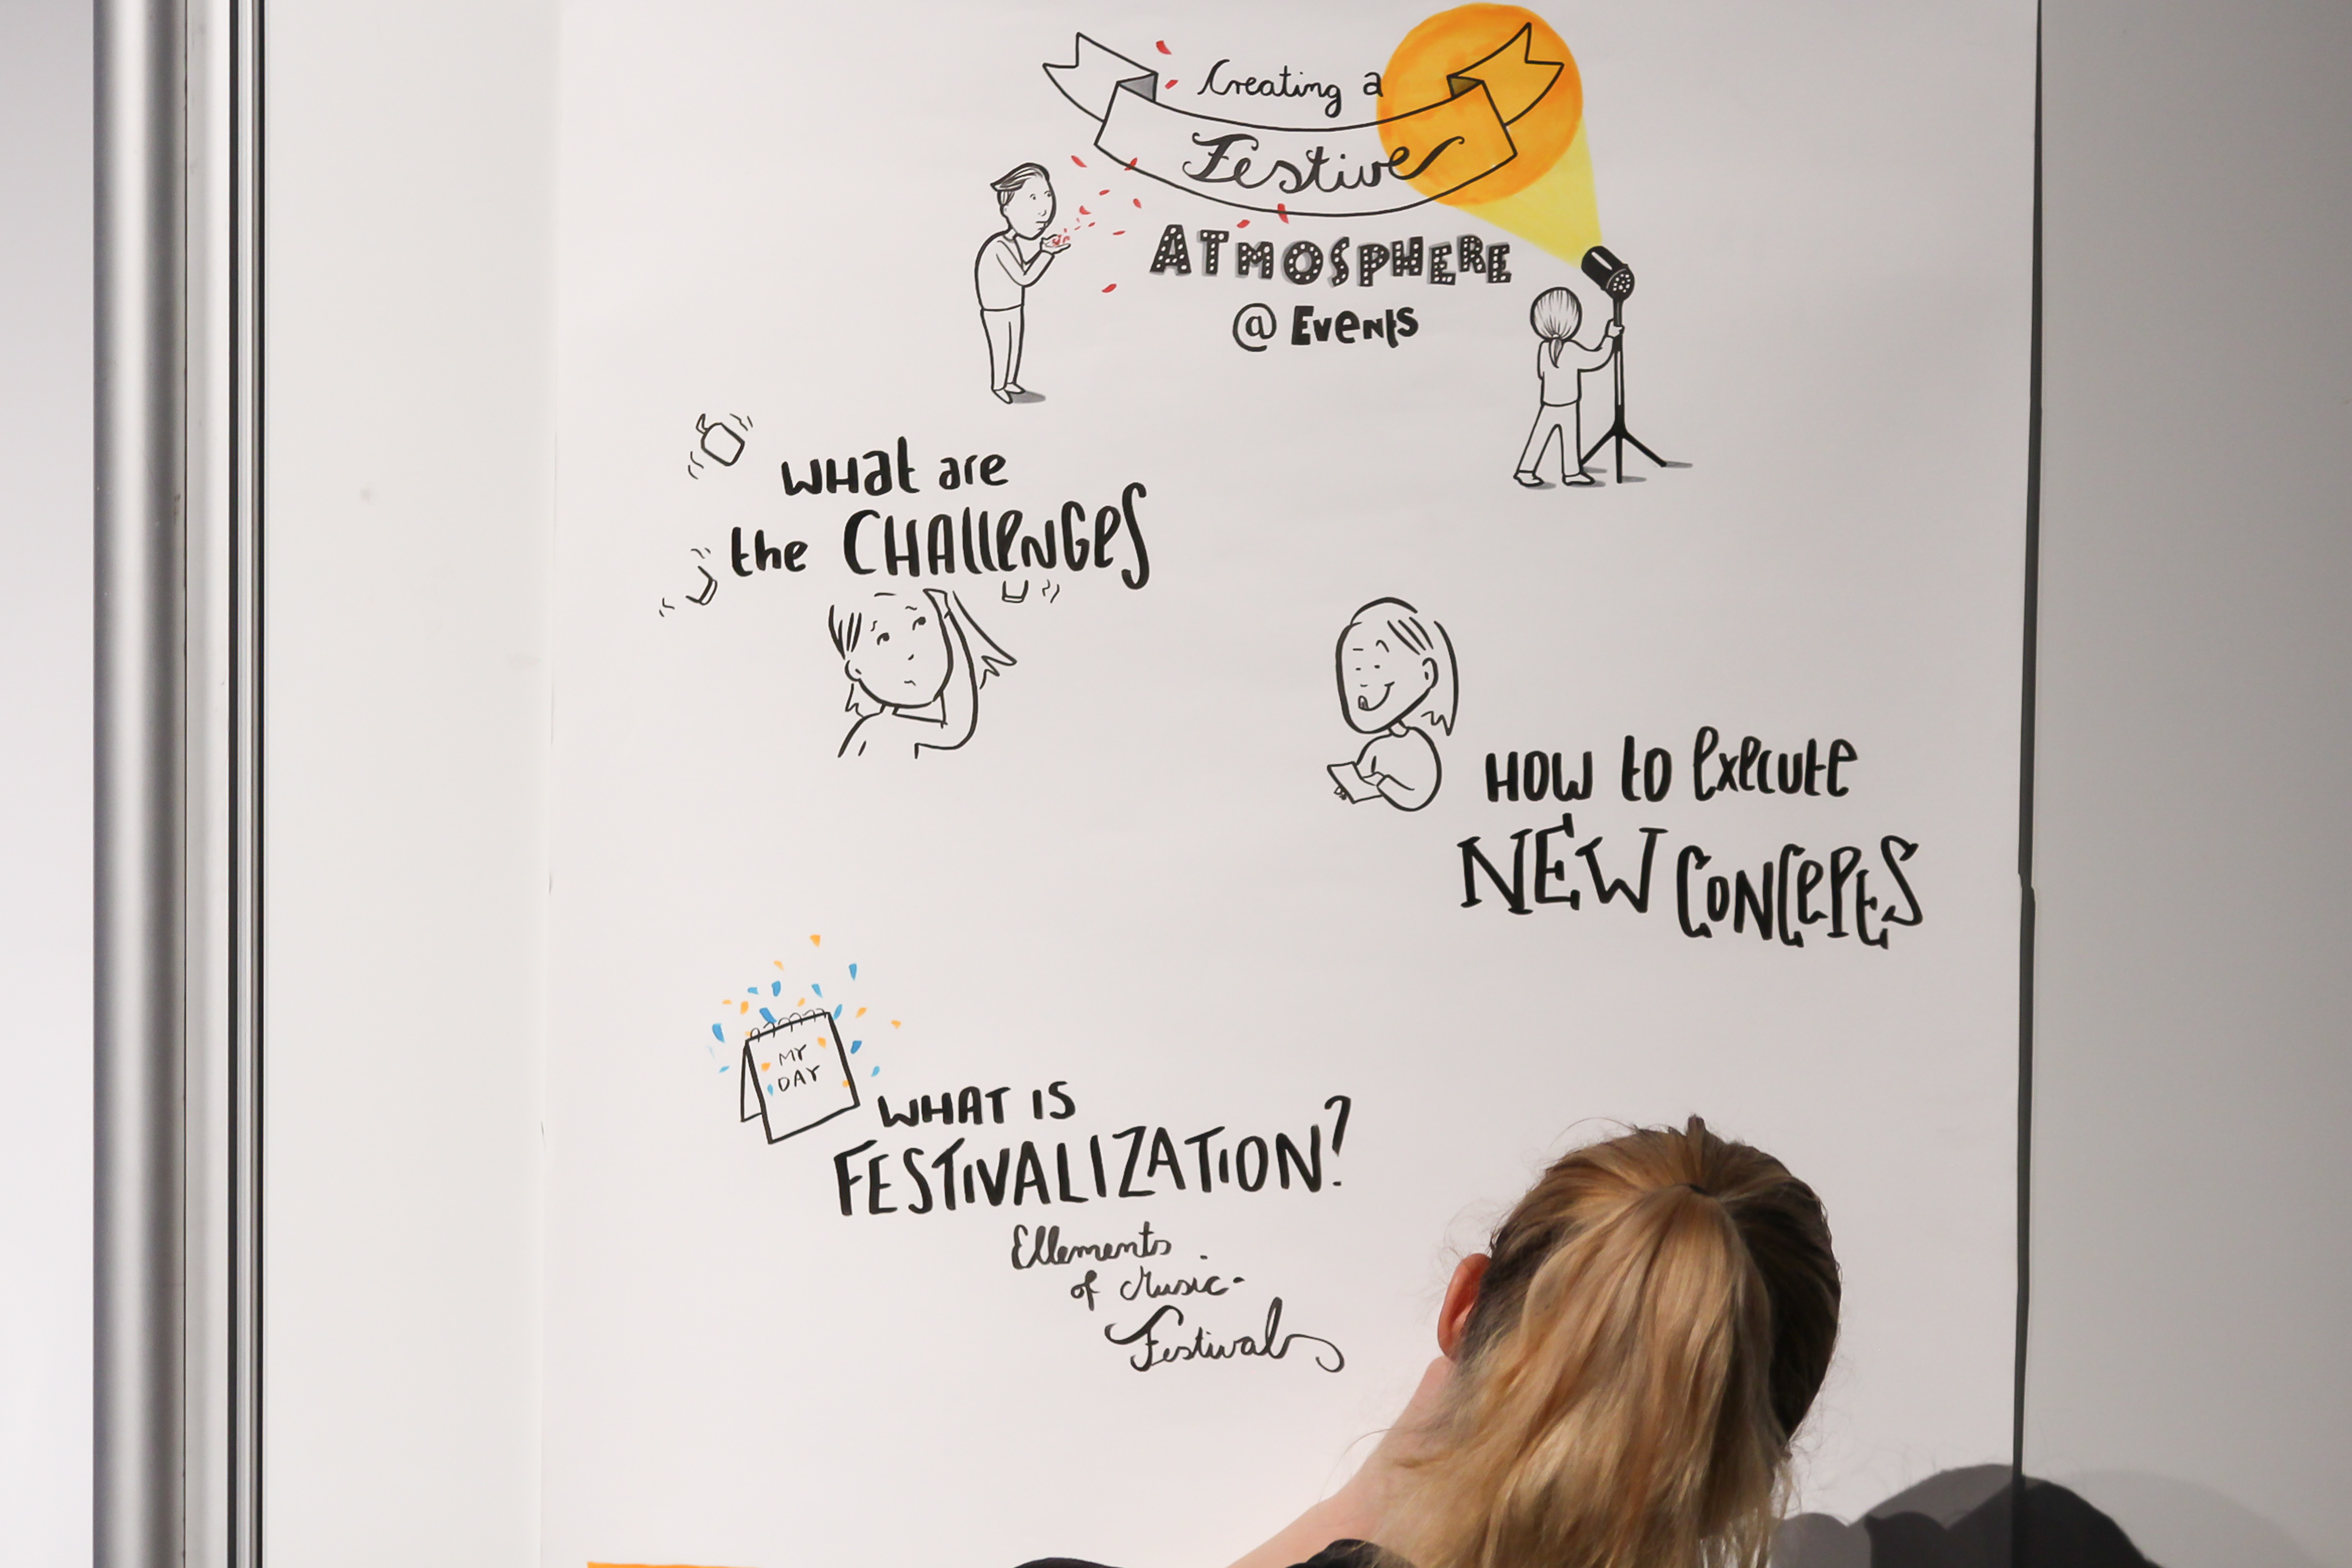 Creating a
Festive
ATMOSPHERE
@ Events
WHat are
the CHAllenGes
HOW to execute
NEW CONCEPtS
MY
DAY
WHAT IS
FESTIVALIZATION?
Ellements
of Music-
Festivals